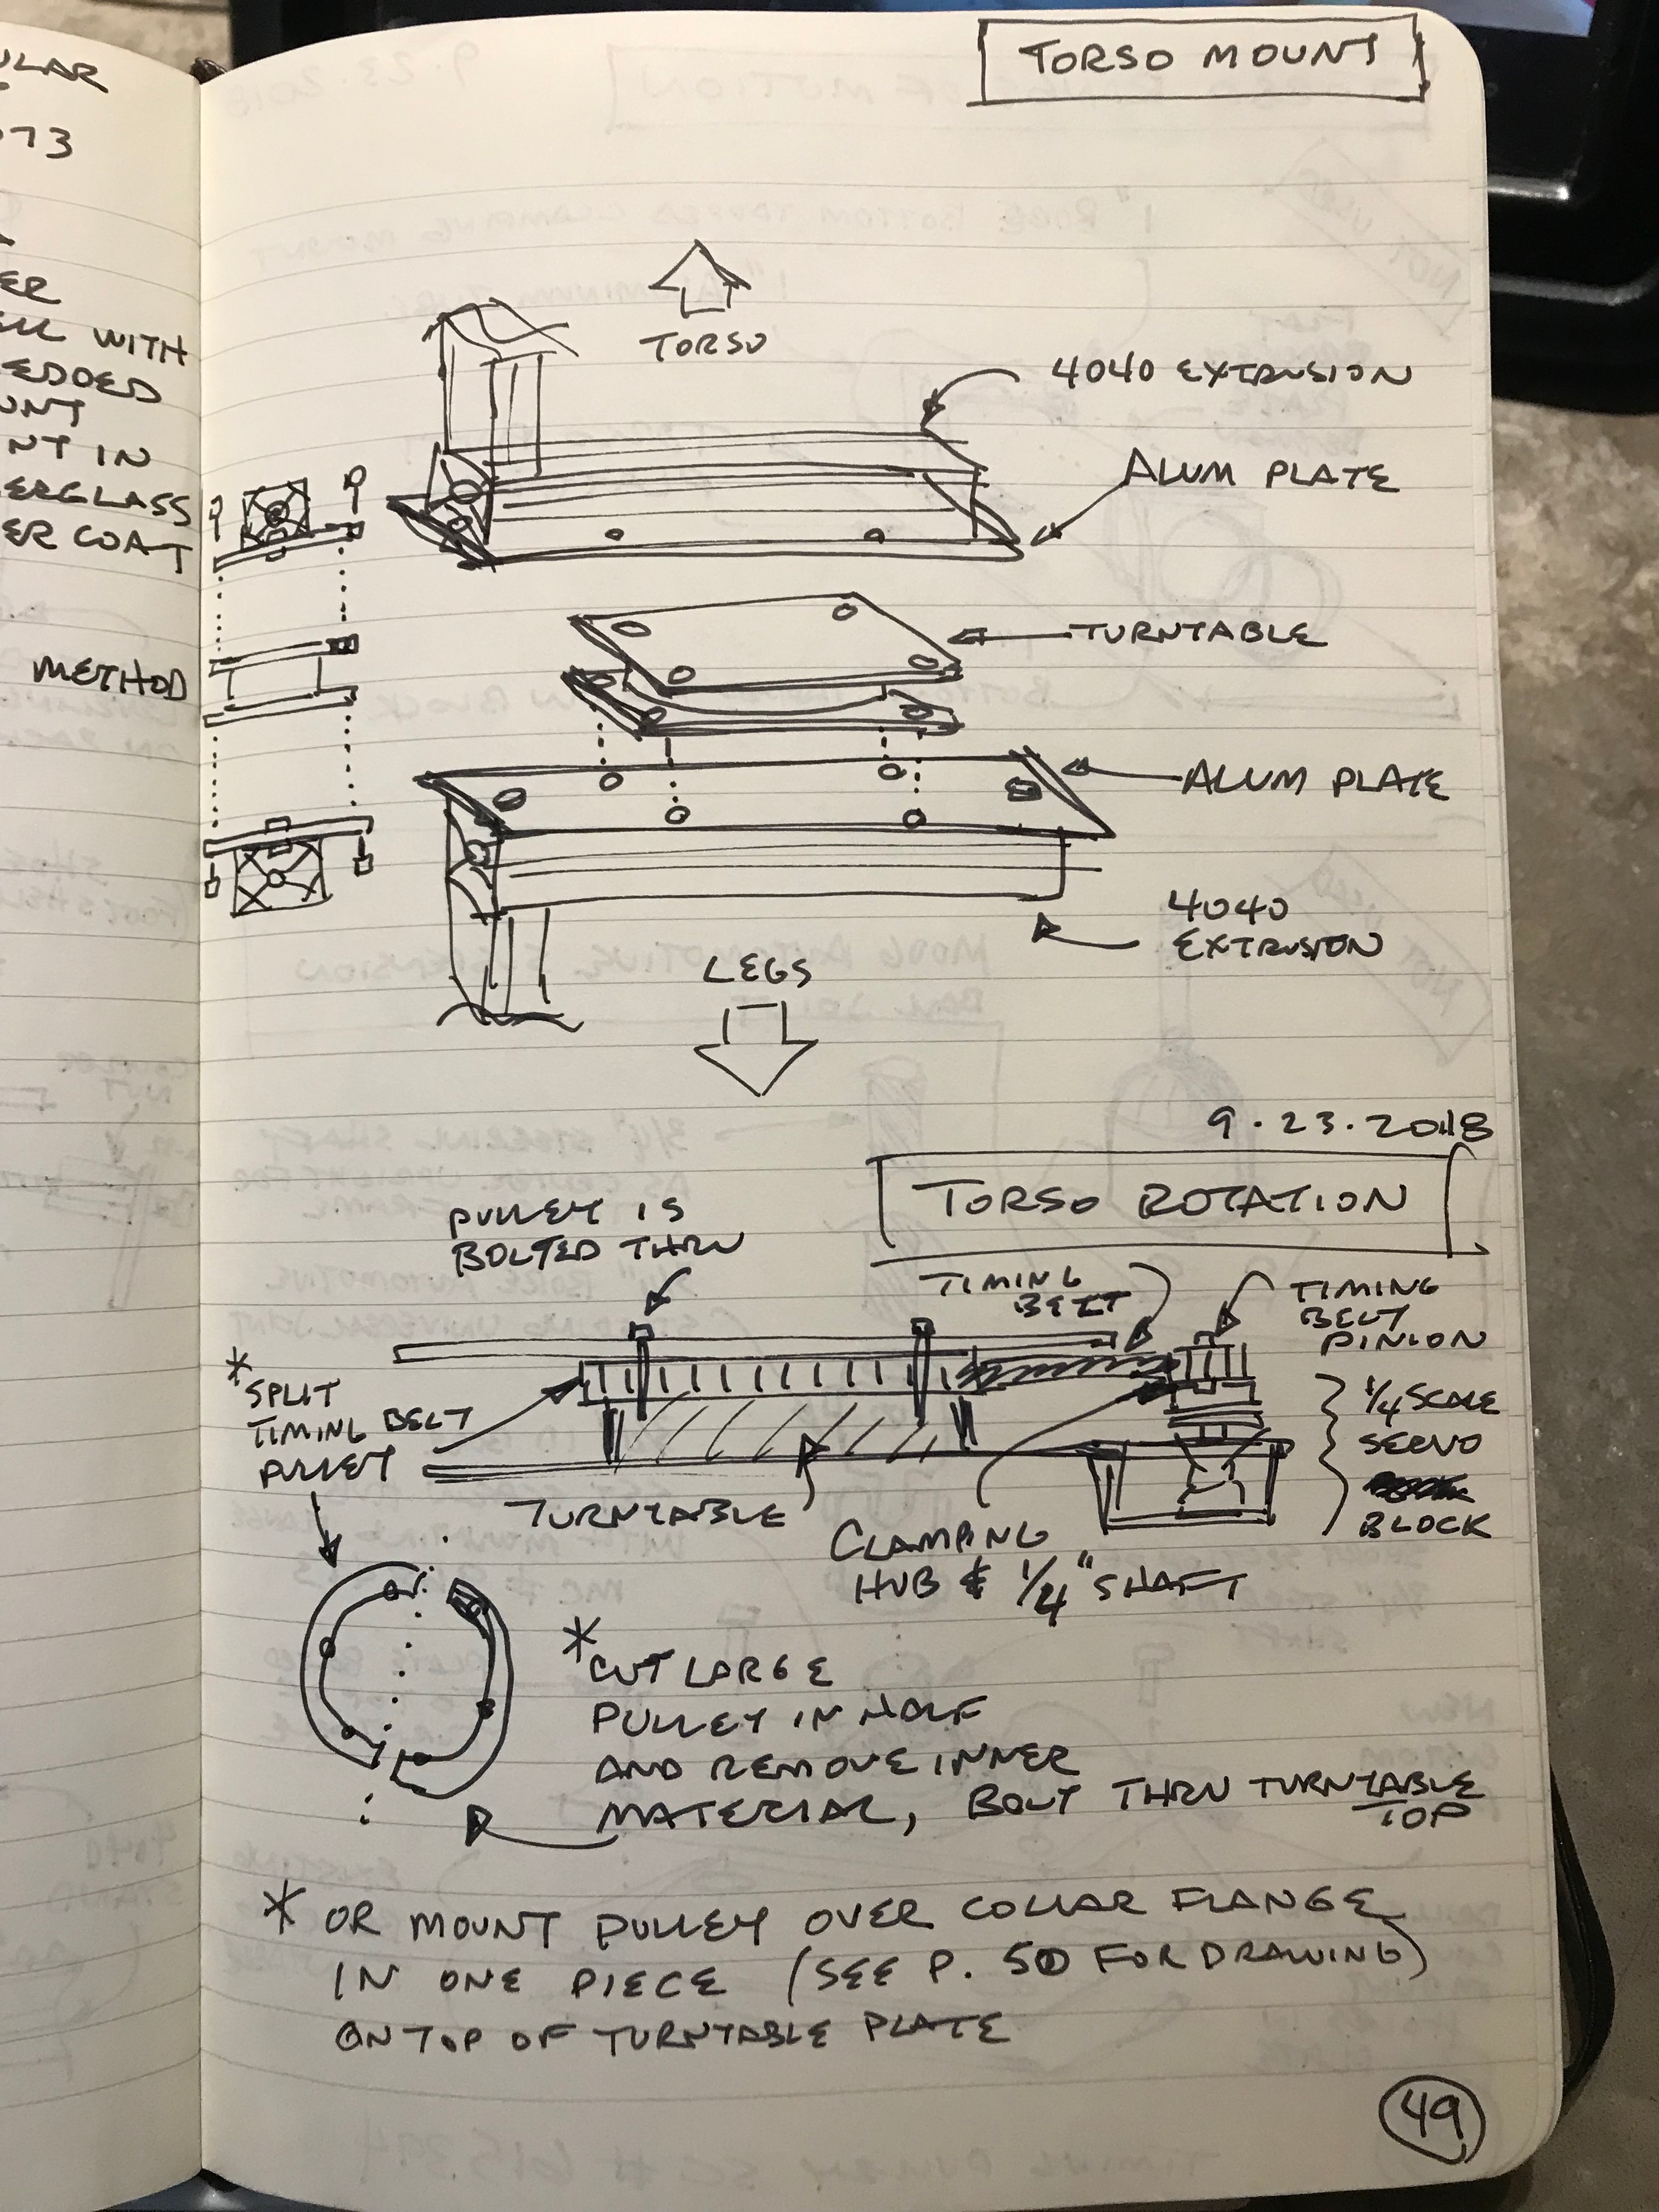 TORSO MOUNT
TORSO
4040 EXTRUSION
ALUM PLATE
TURNTABLE
ALUM PLATE
4040
EXTRUSION
LEGS
9.23.2018
TORSO ROTATION
PULLEY IS
BOLTED THRU
TIMING
BELT
TIMING
BELT
PINION
*SPLIT
TIMING BELT
PULLEY
1/4 SCALE
SERVO
BLOCK
TURNTABLE
CLAMPING
HUB & 1/4" SHAFT
*CUT LARGE
PULLEY IN HALF
AND REMOVE INNER
MATERIAL, BOLT THRU TURNTABLE
TOP
* OR MOUNT PULLEY OVER COLLAR FLANGE
IN ONE PIECE (SEE P. 50 FOR DRAWING)
ON TOP OF TURNTABLE PLATE
49
ULAR
073
ER
WITH
EDDED
UNT
NT IN
ERGLASS
ER COAT
METHOD